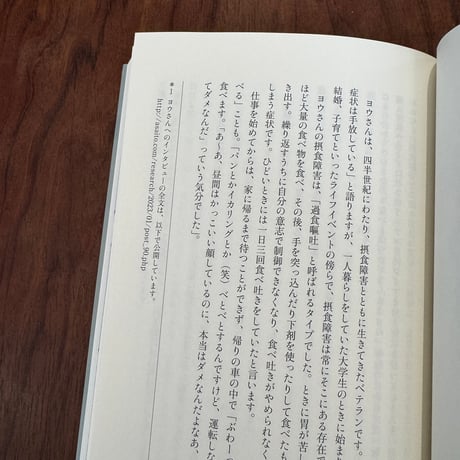 ヨウさんは、四半世紀にわたり、摂食障害とともに生きてきたベテランです。
症状は手放している」と語りますが、一人暮らしをしていた大学生のときに始ま
結婚、子育てといったライフイベントの傍らで、摂食障害は常にそこにある存在で
ヨウさんの摂食障害は、「過食嘔吐」と呼ばれるタイプでした。ときに胃が苦し
ほど大量の食べ物を食べ、その後、手を突っ込んだり下剤を使ったりして食べたも
き出す。繰り返すうちに自分の意志で制御できなくなり、食べ吐きがやめられなく
しまう症状です。ひどいときには一日三回食べ吐きをしていたと言います。
仕事を始めてからは、家に帰るまで待つことができず、帰りの車の中で「ぶわーっ
べる」ことも。「パンとかイカリングとか(笑)べとべとするんですけど、運転しな
食べます。「あ〜あ、昼間はかっこいい顔しているのに、本当はダメなんだよなあ、
てダメなんだ」っていう気分でした」。
*1 ヨウさんへのインタビューの全文は、以下で公開しています。
http://asaito.com/research/2023/01/post_90.php